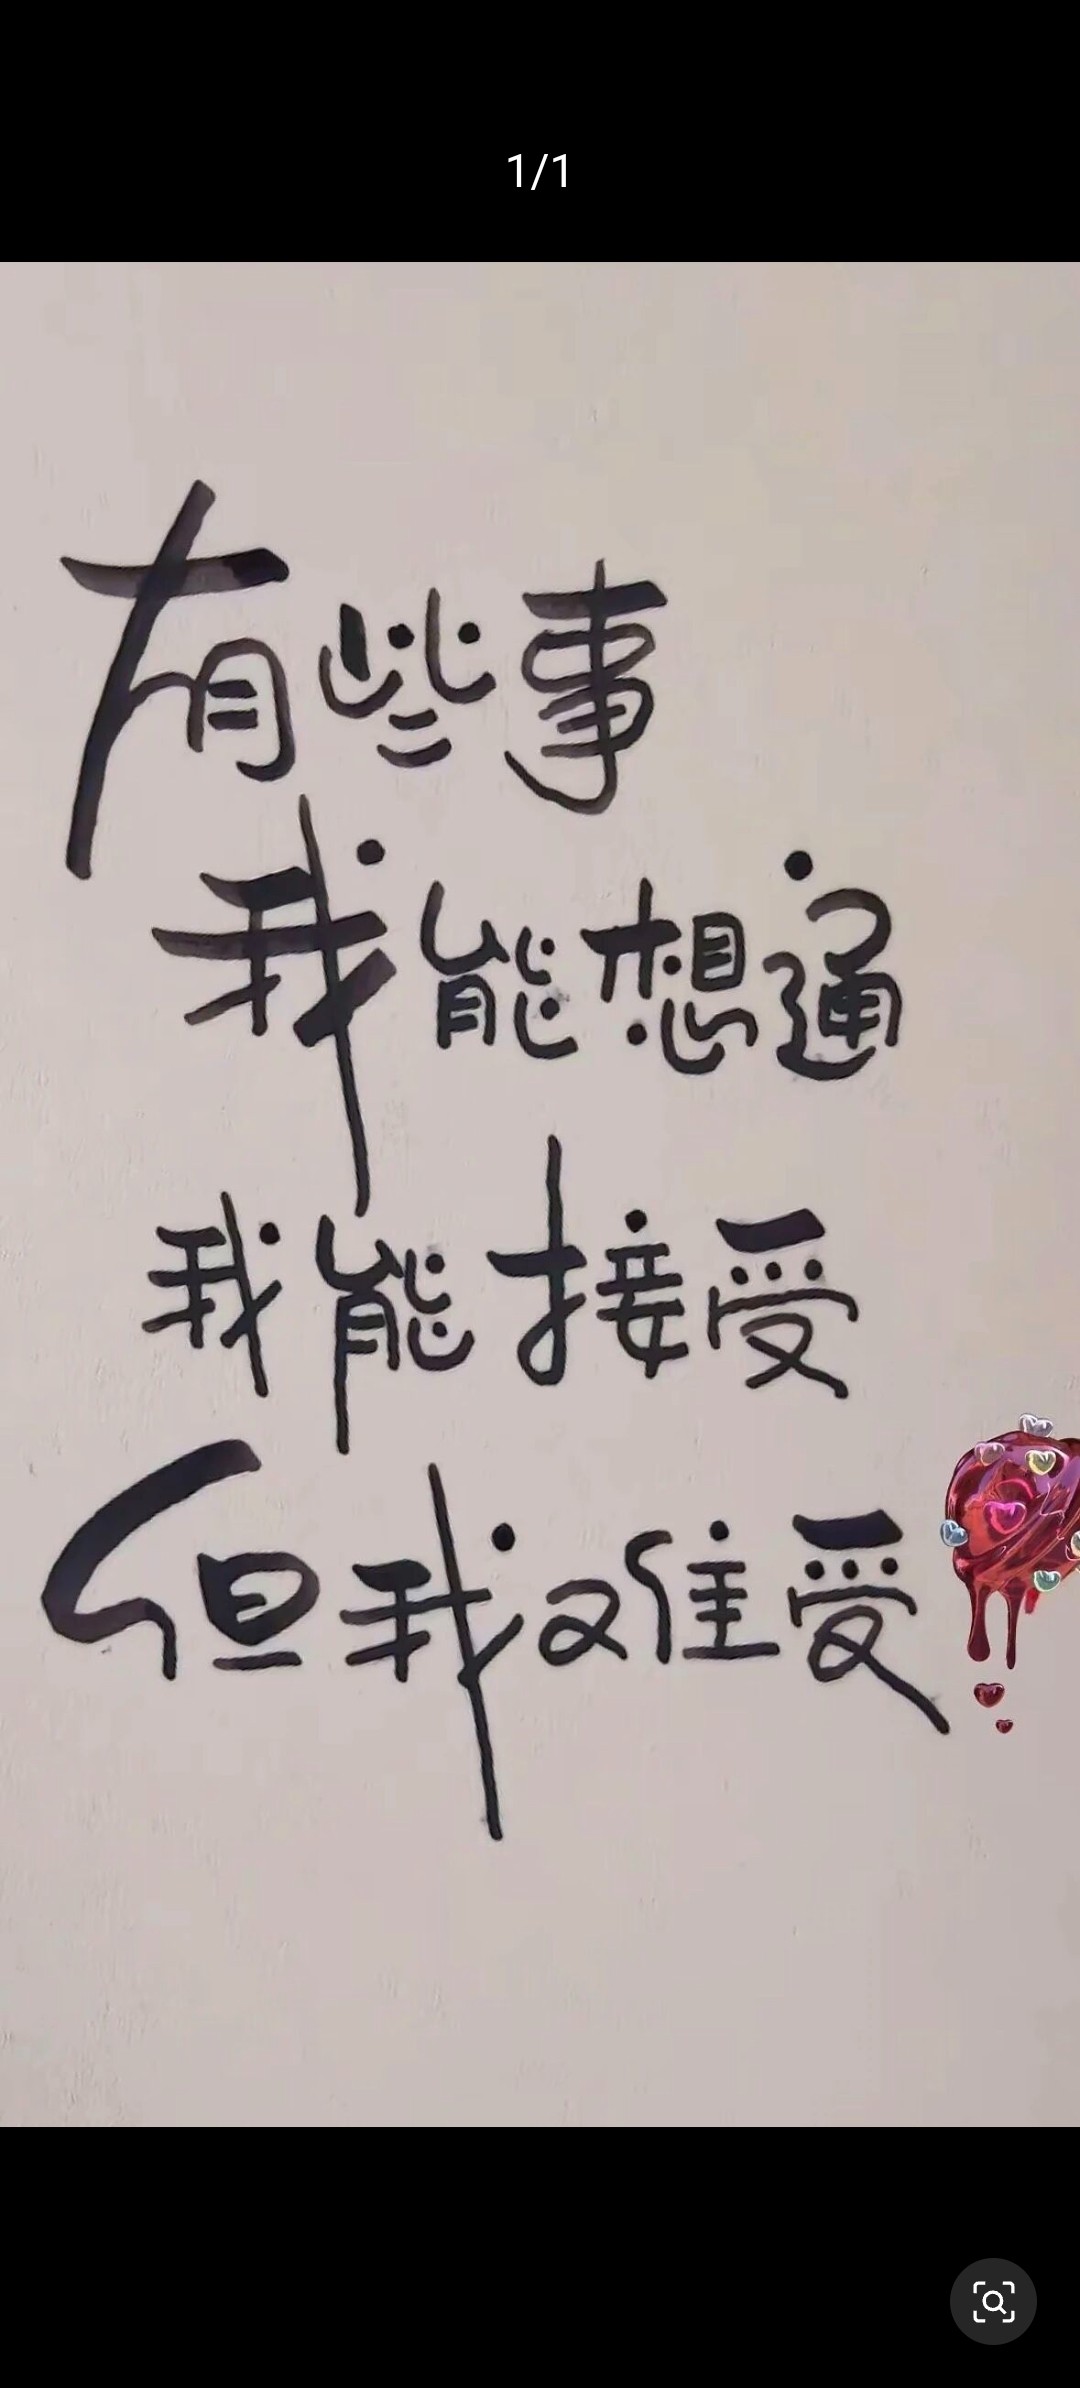 1/1
有些事
我能想通
我能接受
但我难受